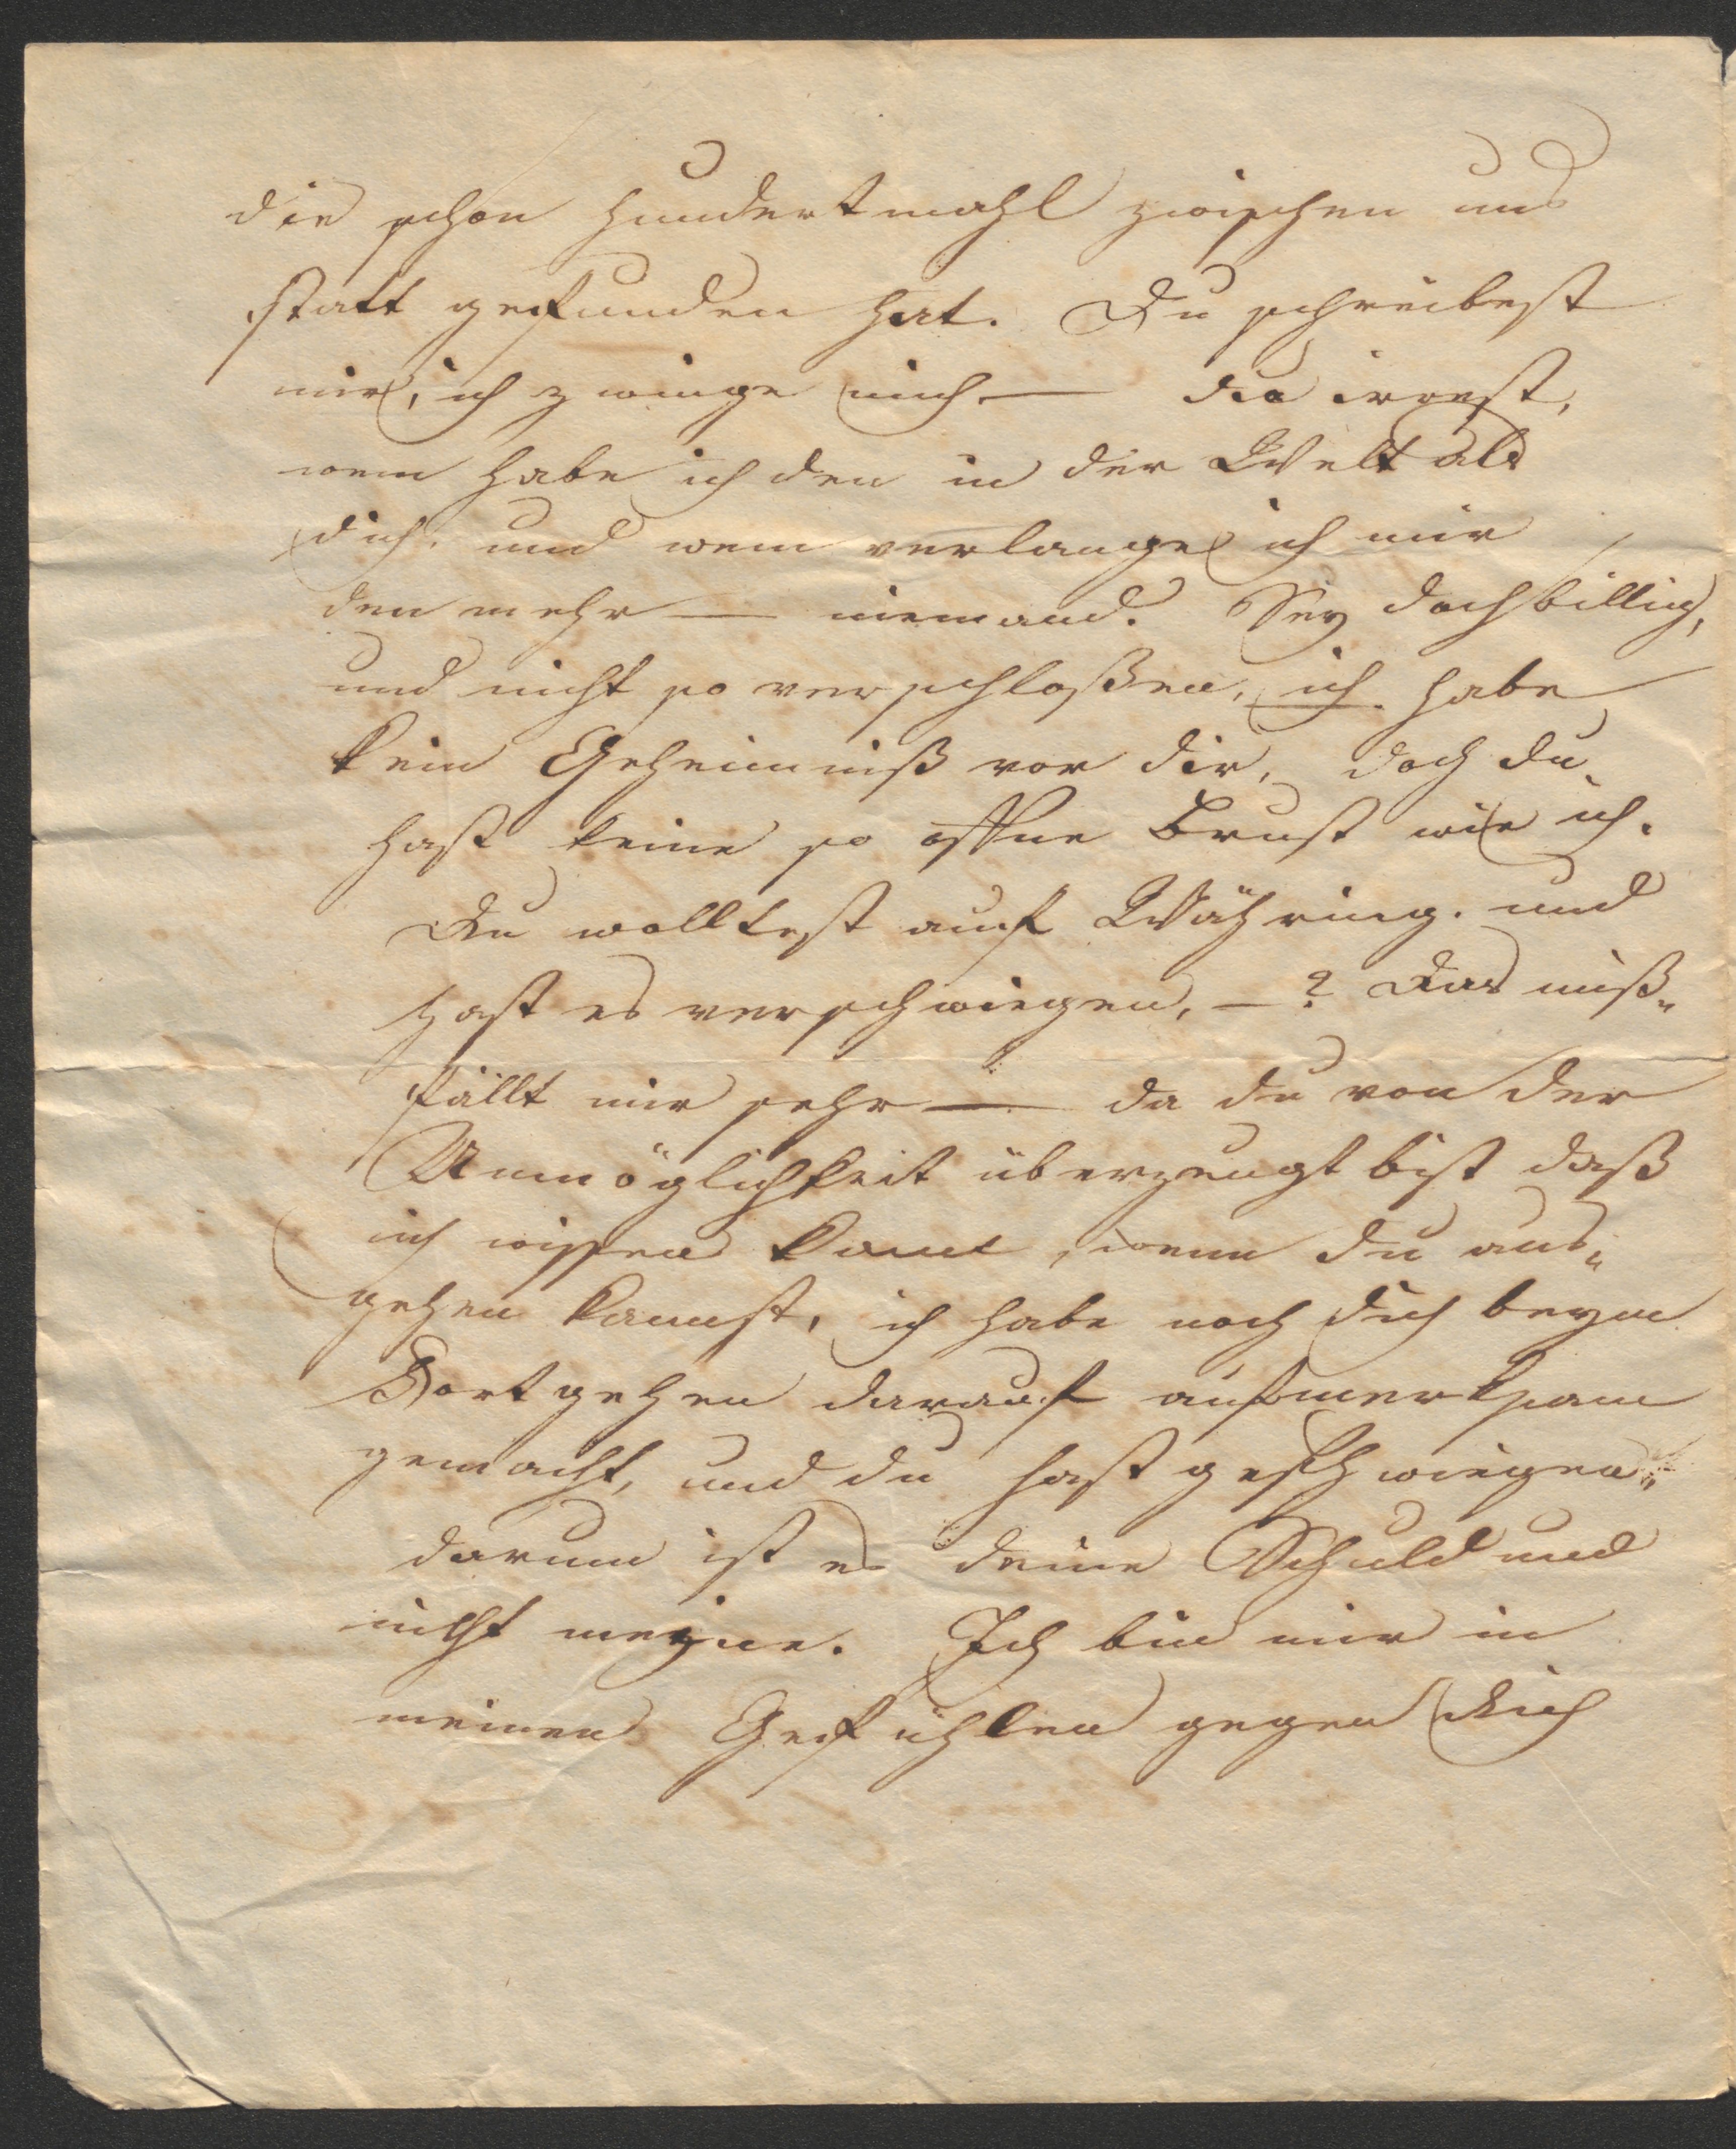 die schon hundertmahl zwischen uns
statt gefunden hat. Du schreibest
mir, ich zwinge mich — du irrest,
wem habe ich den in der Welt als
dich, und wem verlange ich mir
den mehr — niemand. Sey doch billig,
und nicht so verschloßen, ich habe
kein Geheimniß vor dir, doch du
hast keine so offne Brust wie ich.
Du wolltest auf Währing. und
hast es verschwiegen, —? Das miß„
fällt mir sehr — da du von der
Unmöglichkeit überzeugt bist daß
ich wissen kann, wenn du aus„
gehen kannst, ich habe noch dich beym
Fortgehen darauf aufmerksam
gemacht, und du hast geschwiegen„
darum ist es deine Schuld und
nicht meine. Ich bin mir in
meinen Gefühlen gegen Dich